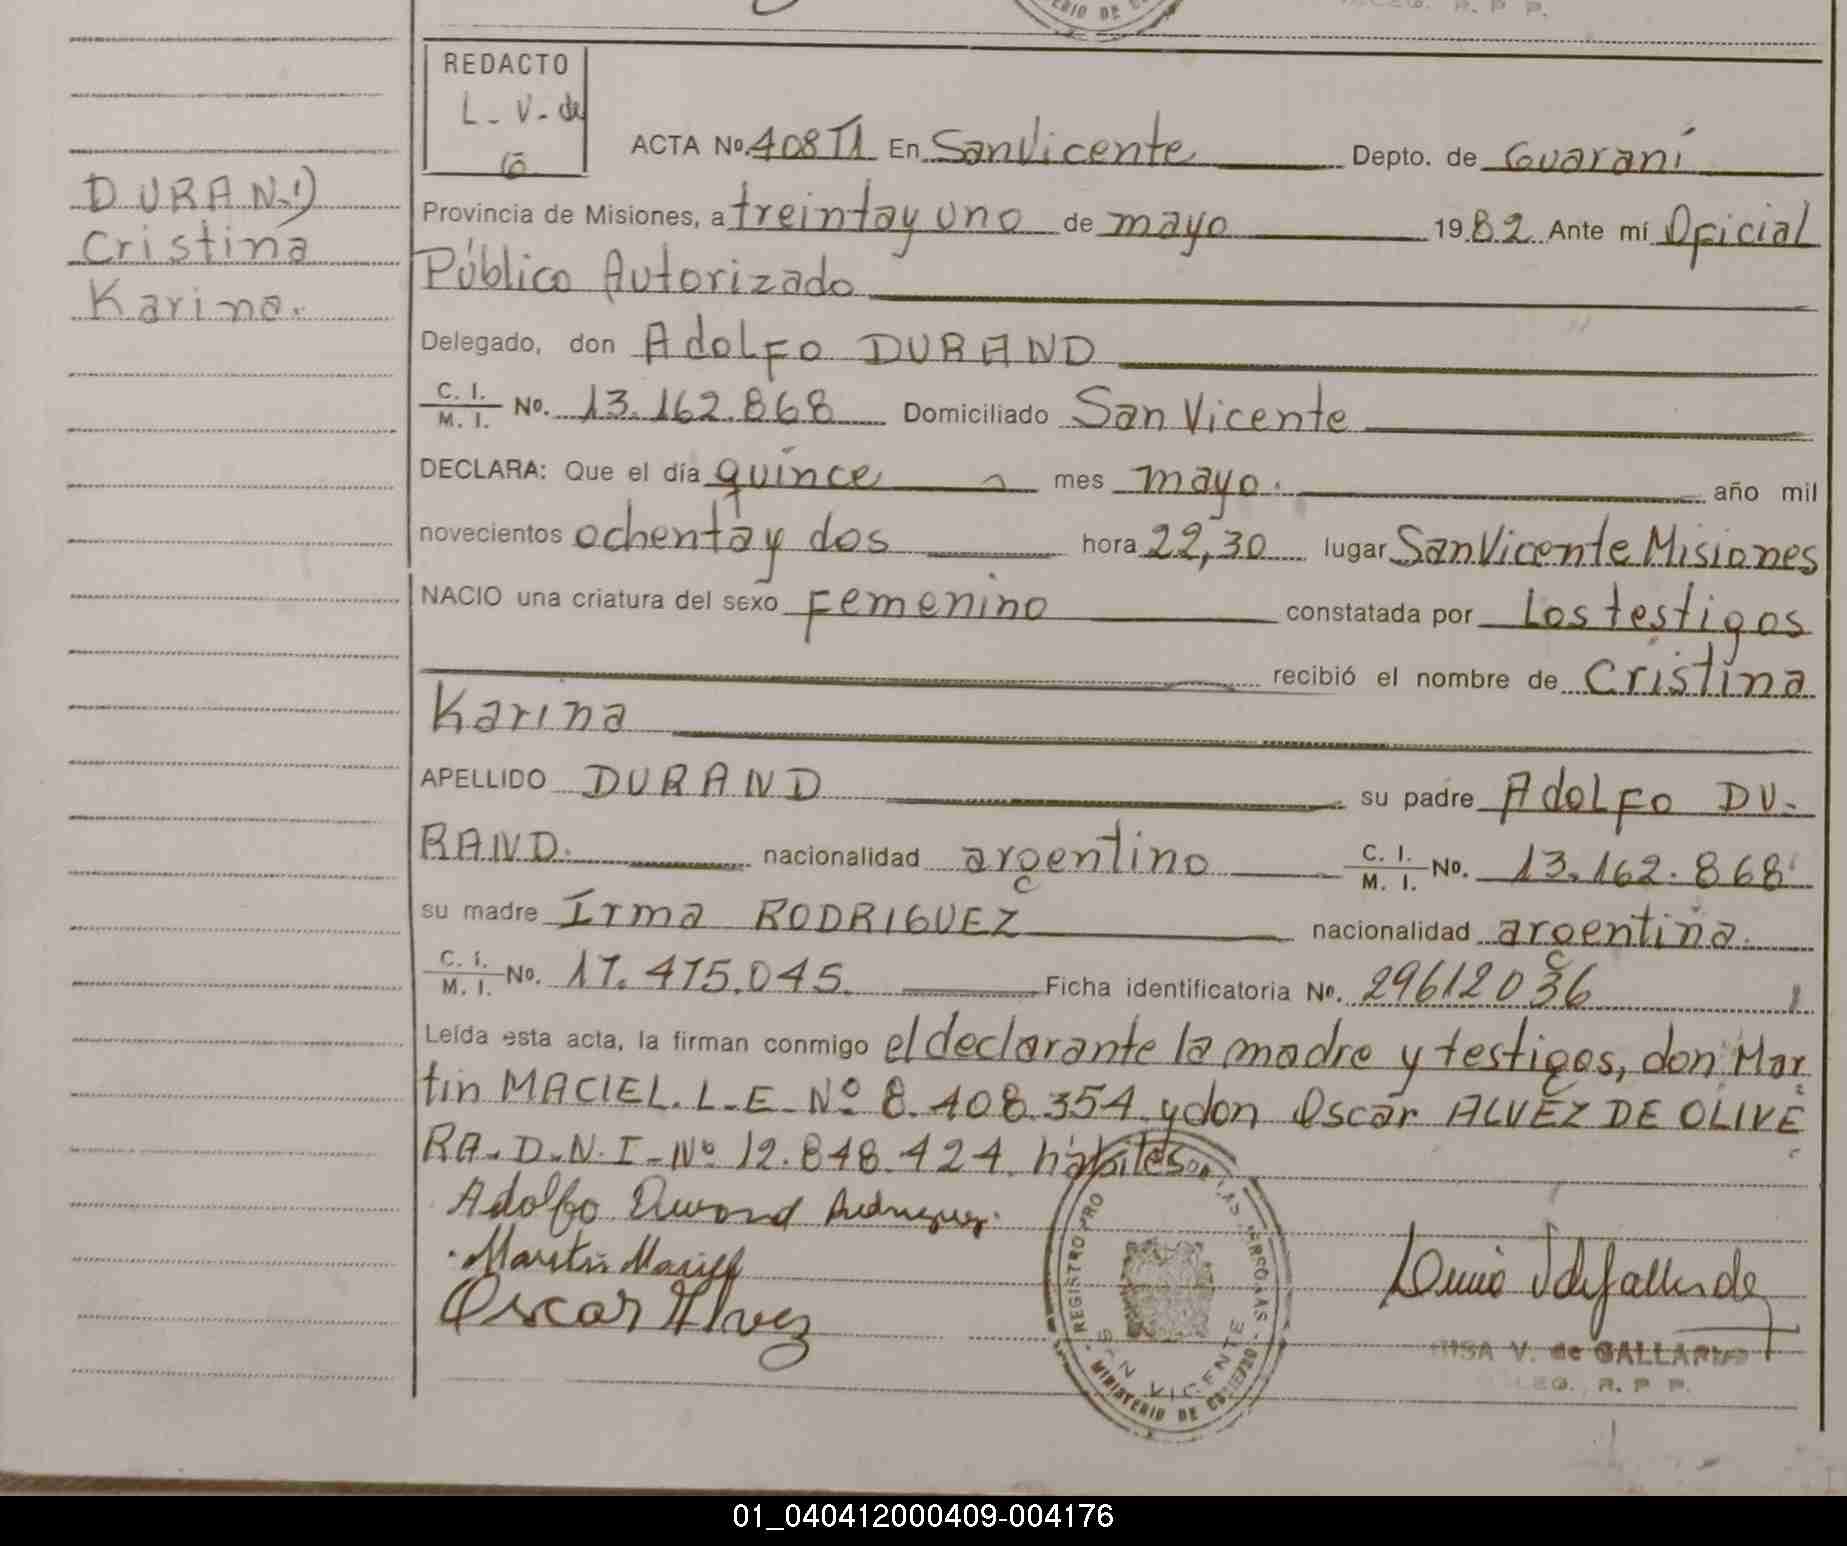 REDACTO
L-V-de
G
ACTA No. 408 T1 En San Vicente Depto. de Guaraní
DURAND
Provincia de Misiones, a treinta y uno de mayo 1982 Ante mí Oficial
Cristina
Público Autorizado
Karina.
Delegado, don Adolfo DURAND
C. I. / M. I. No. 13.162.868 Domiciliado San Vicente
DECLARA: Que el día quince mes mayo. año mil
novecientos ochenta y dos hora 22,30 lugar San Vicente Misiones
NACIO una criatura del sexo Femenino constatada por Los testigos
recibió el nombre de Cristina
Karina
APELLIDO DURAND su padre Adolfo DU-
RAND. nacionalidad argentino C. I. / M. I. No. 13.162.868
su madre Irma RODRIGUEZ nacionalidad argentina.
C. I. / M. I. No. 17.475.045. Ficha identificatoria No. 29612036
Leída esta acta, la firman conmigo el declarante la madre y testigos, don Mar
tin MACIEL. L-E-Nº 8.408.354. y don Oscar ALVEZ DE OLIVE
RA-D-N-I-Nº 12.848.424. hábiles
Adolfo Durand Rodriguez.
Martin Maciel
Oscar Alvez
REGISTRO PRO LAS PERSONAS
SAN VICENTE
MINISTERIO DE GOBIERNO
V. de GALLARDO
R. P. P.
01_040412000409-004176